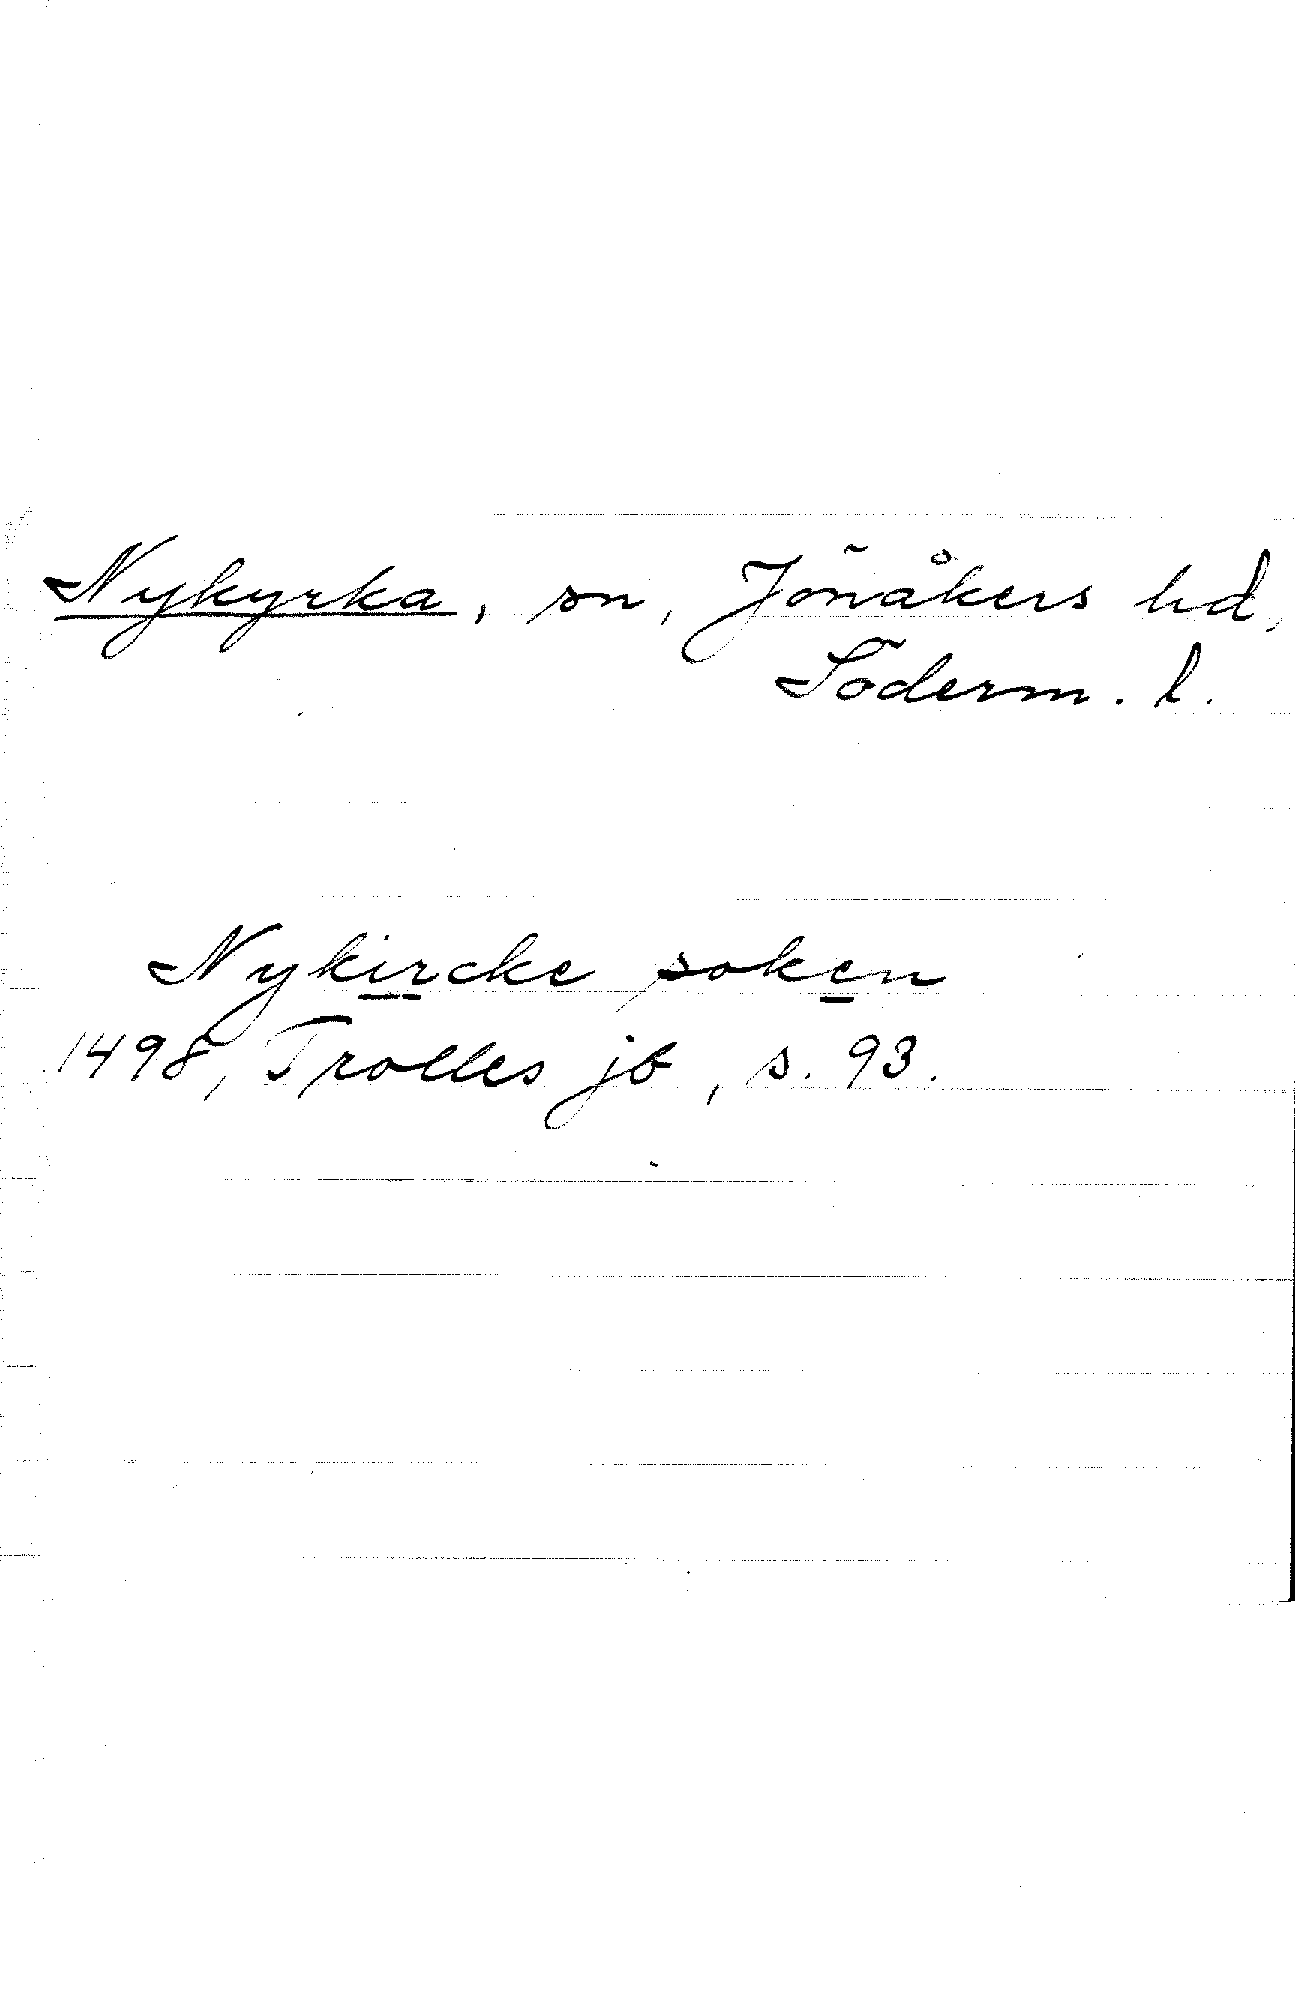 Nykyrka, sn, Jönåkers hd,
Söderm. l.
Nykircke soken
1498, Trolles jb, s. 93.